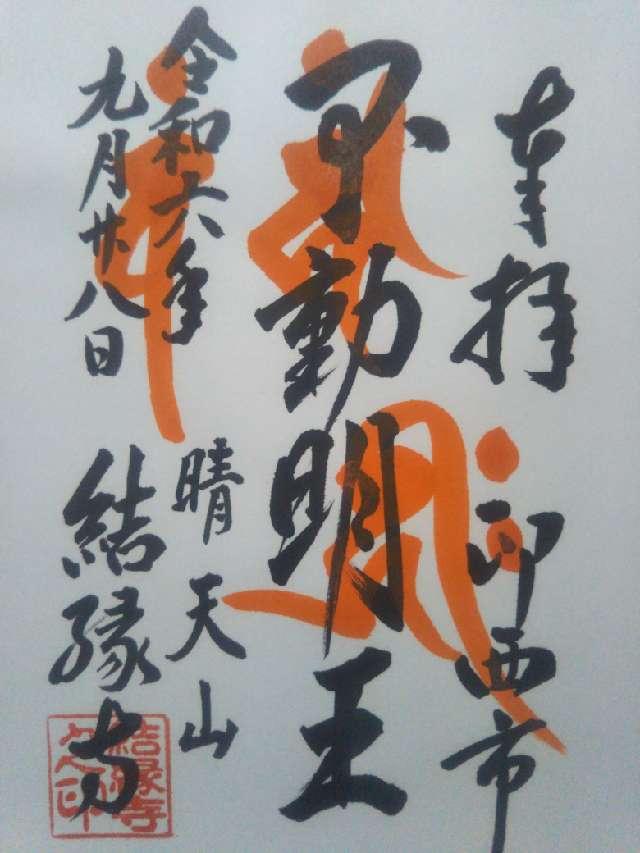 奉拝
印西市
不動明王
令和六年
九月廿八日
晴天山
結縁寺
結縁寺之印